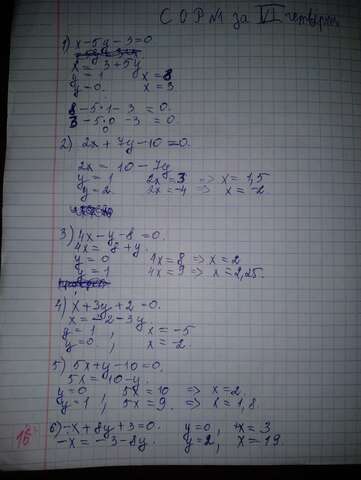 СОРМ за VI четверть
1) x - 5y - 3 = 0
x = 3 + 5y
y = 1 x = 8
y = 0 x = 3
8 - 5 · 1 - 3 = 0.
3 - 5 · 0 - 3 = 0.
2) 2x + 7y - 10 = 0.
2x = 10 - 7y
y = 1 2x = 3 => x = 1,5
y = 2 2x = -4 => x = -2
3) 4x - y - 8 = 0.
4x = 8 + y.
y = 0 4x = 8 => x = 2
y = 1 4x = 9 => x = 2,25.
4) x + 3y + 2 = 0.
x = -2 - 3y
y = 1 , x = -5
y = 0 , x = -2
5) 5x + y - 10 = 0.
5x = 10 - y.
y = 0 , 5x = 10 => x = 2.
y = 1 , 5x = 9 => x = 1,8.
6) -x + 8y + 3 = 0. y = 0 , x = 3
-x = -3 - 8y. y = 2, x = 19.